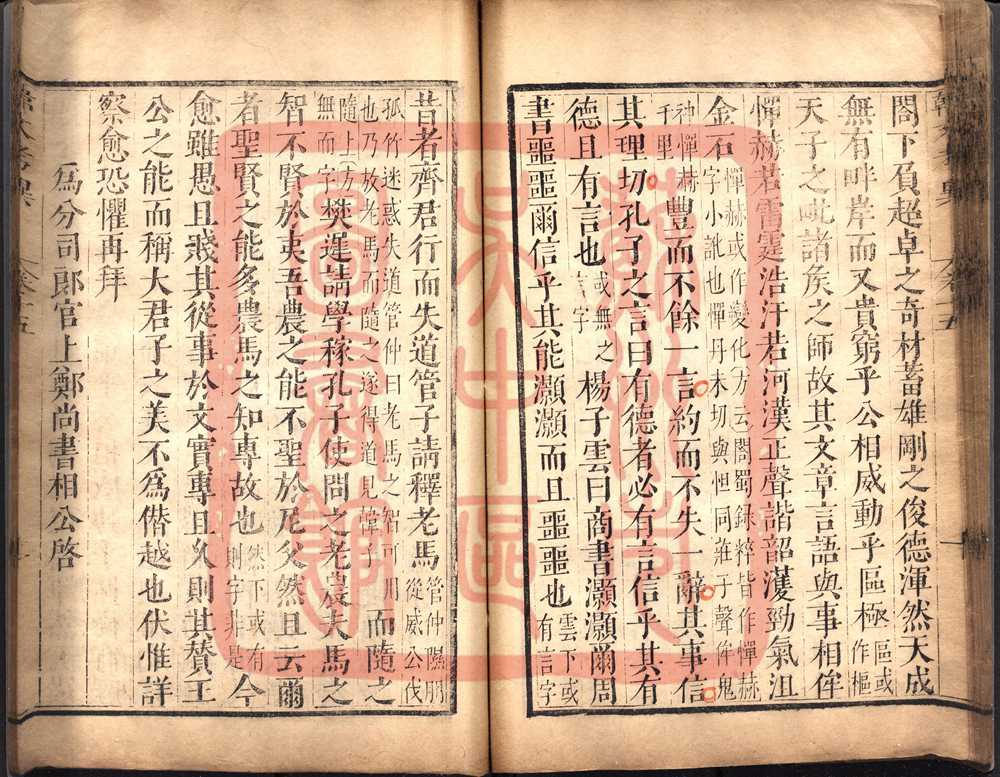 閤下負超卓之奇材蓄雄剛之俊德渾然天成
無有畔岸而又貴窮乎公相威動乎區極區或作樞
天子之毗諸矦之師故其文章言語與事相侔
憚赫若雷霆浩汗若河漢正聲諧韶濩勁氣沮
金石憚赫或作變化方云閤蜀録粹皆作憚赫字小訛也憚丹末切與怛同莊子聲侔鬼
神憚赫千里豐而不餘一言約而不失一辭其事信
其理切孔子之言曰有德者必有言信乎其有
德且有言也或無之言字楊子雲曰商書灝灝爾周
書噩噩爾信乎其能灝灝而且噩噩也雲下或有言字
昔者齊君行而失道管子請釋老馬管仲隰朋從威公伐
孤竹迷惑失道管仲曰老馬之智可用也乃放老馬而隨之遂得道見韓子而隨之
隨上方無而字樊遲請學稼孔子使問之老農夫馬之
智不賢於夷吾農之能不聖於尼父然且云爾
者聖賢之能多農馬之知專故也然下或有則字非是今
愈雖愚且戇其從事於文實專且久則其贊王
公之能而稱大君子之美不爲僭越也伏惟詳
察愈恐懼再拜
爲分司郎官上鄭尚書相公啓